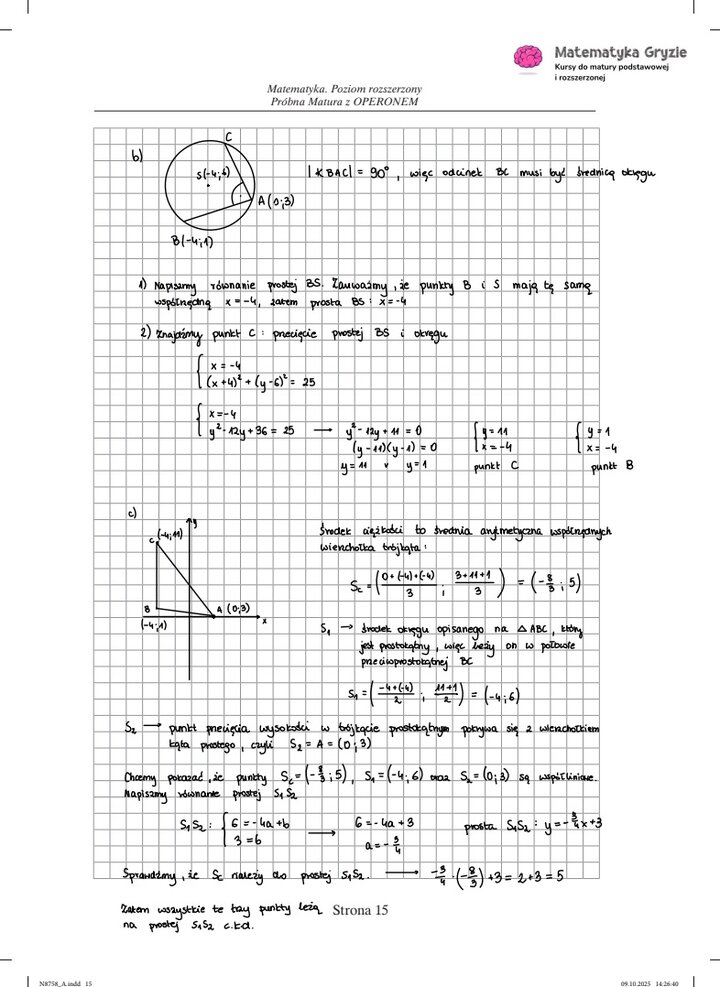 Matematyka Gryzie
Kursy do matury podstawowej
i rozszerzonej
Matematyka. Poziom rozszerzony
Próbna Matura z OPERONEM
b)
C
S(-4;6)
A(0;3)
B(-4;1)
|∢BAC| = 90°, więc odcinek BC musi być średnicą okręgu
1) Napiszmy równanie prostej BS. Zauważmy, że punkty B i S mają tę samą
współrzędną x = -4, zatem prosta BS : x = -4
2) Znajdźmy punkt C : przecięcie prostej BS i okręgu
{ x = -4
(x+4)² + (y-6)² = 25
{ x = -4
y² - 12y + 36 = 25 → y² - 12y + 11 = 0
(y-11)(y-1) = 0
y = 11 v y = 1
{ y = 11
x = -4
punkt C
{ y = 1
x = -4
punkt B
c)
y
C (-4;11)
B
(-4;1)
A (0;3)
x
Środek ciężkości to średnia arytmetyczna współrzędnych
wierzchołka trójkąta :
Sc = ( (0+(-4)+(-4))/3 ; (3+11+1)/3 ) = (-8/3 ; 5)
S₁ → środek okręgu opisanego na △ABC, który
jest prostokątny, więc leży on w połowie
przeciwprostokątnej BC
S₁ = ( (-4+(-4))/2 ; (11+1)/2 ) = (-4;6)
S₂ → punkt przecięcia wysokości w trójkącie prostokątnym pokrywa się z wierzchołkiem
kąta prostego, czyli S₂ = A = (0;3)
Chcemy pokazać, że punkty Sc = (-8/3 ; 5), S₁ = (-4;6) oraz S₂ = (0;3) są współliniowe.
Napiszmy równanie prostej S₁S₂
S₁S₂ : { 6 = -4a + b
3 = b
→
6 = -4a + 3
a = -3/4
prosta S₁S₂ : y = -3/4x + 3
Sprawdźmy, że Sc należy do prostej S₁S₂. → -3/4 · (-8/3) + 3 = 2 + 3 = 5
Zatem wszystkie te trzy punkty leżą
na prostej S₁S₂ c.k.d.
Strona 15
N8758_A.indd 15
09.10.2025 14:26:40